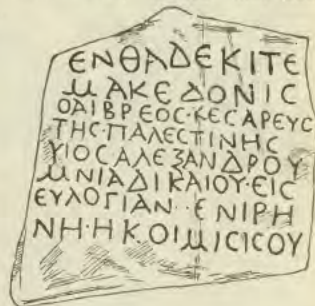 ΕΝΘΑΔΕΚΙΤΕ
ΜΑΚΕΔΟΝΙC
ΟΑΙΒΡΕΟC·ΚΕCΑΡΕΥC
ΤΗC·ΠΑΛΕCΤΙΝΗC
ΥΙΟCΑΛΕΞΑΝΔΡΟΥ
ΜΝΙΑΔΙΚΑΙΟΥ·ΕΙC
ΕΥΛΟΓΙΑΝ··ΕΝΙΡΗ
ΝΗ·ΗΚΟΙΜΙCΙCΟΥ